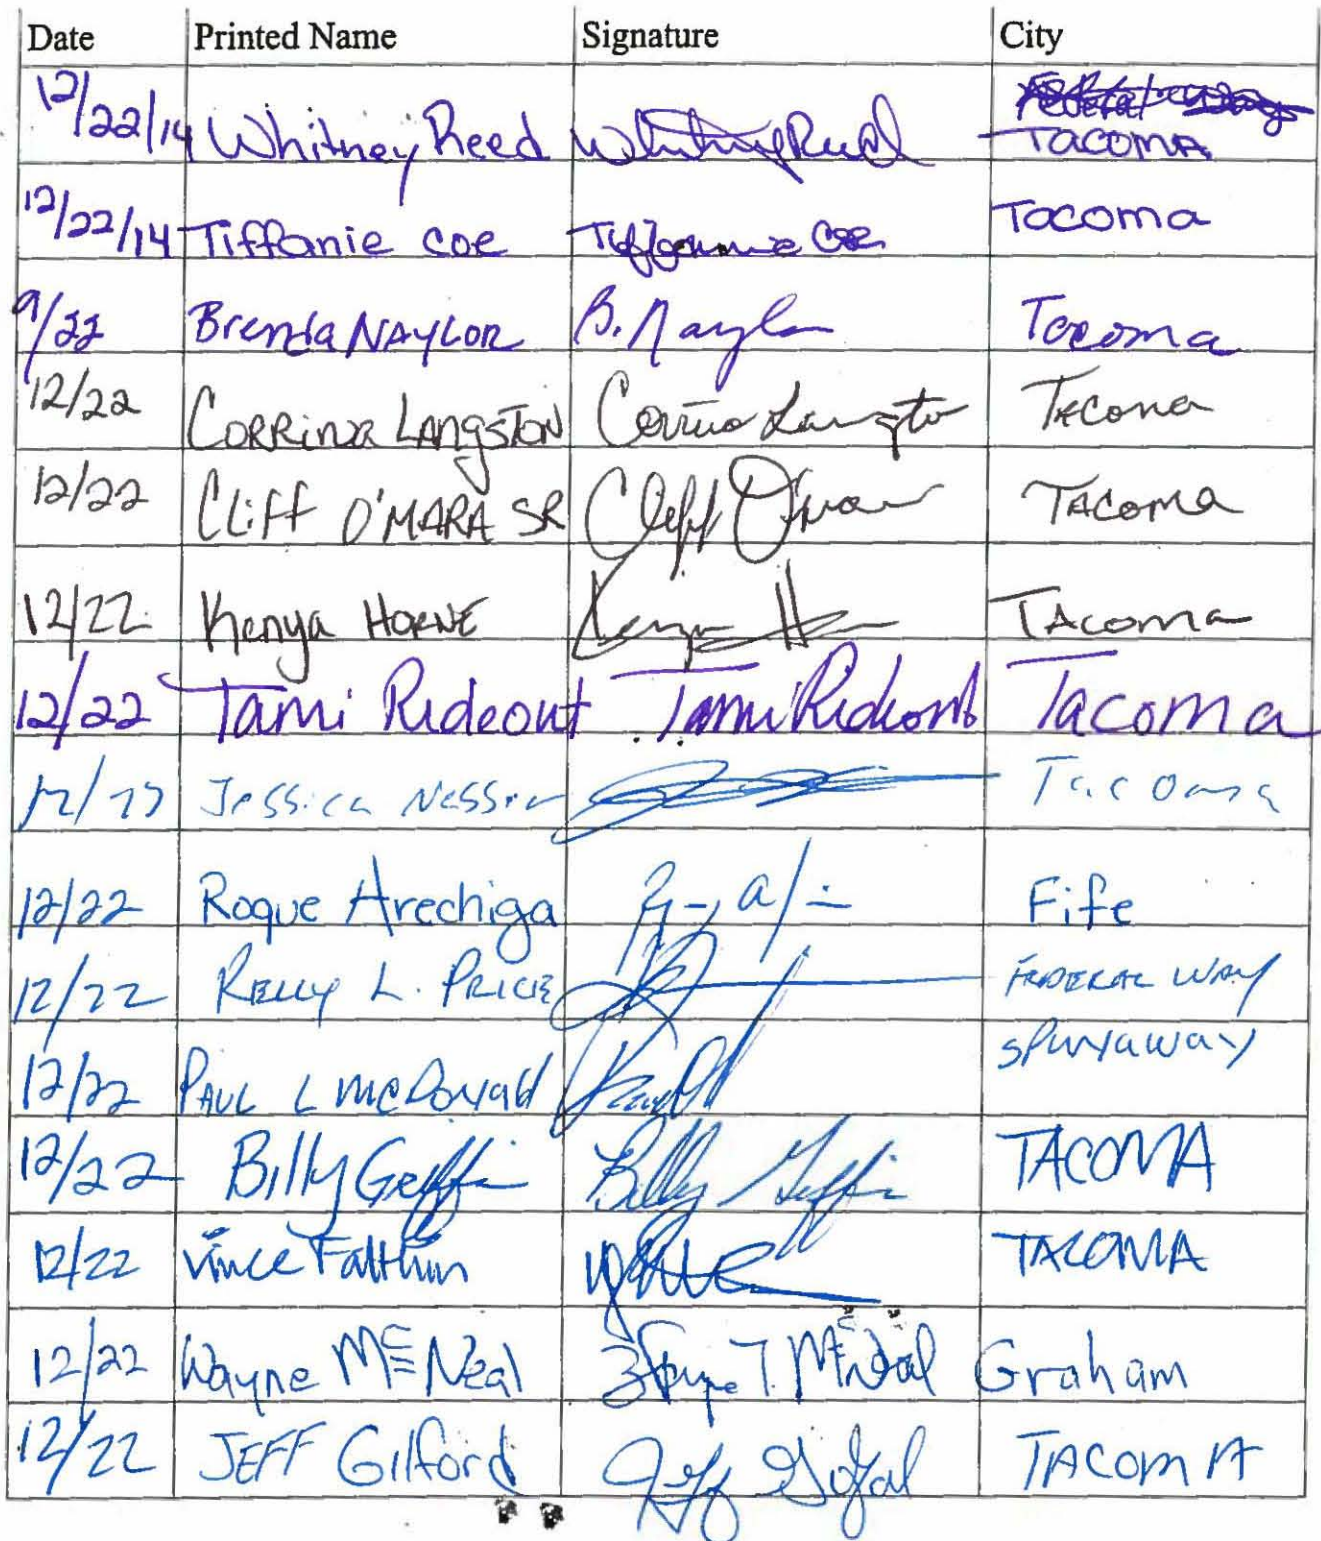 Date Printed Name Signature City
12/22/14 Whitney Reed Whitney Reed Federal Way
Tacoma
12/22/14 Tiffanie Coe Tiffannie Coe Tacoma
9/22 Brenda NAYLOR B. Naylor Tacoma
12/22 CORRINA LANGSTON Tacoma
12/22 CLIFF O'MARA SR Cliff O'Mara TACOMA
12/22 Kenya HORNE Kenya TACOMA
12/22 Tami Rideout Tami Rideout Tacoma
12/22 Jessica Tacoma
12/22 Roque Arechiga Fife
12/22 KELLY L. PRICE FEDERAL WAY
12/22 PAUL L McDonald
12/22 Billy Geffi Billy TACOMA
12/22 Vince TACOMA
12/22 Wayne McNeal Graham
12/22 JEFF Gilford Jeff TACOMA